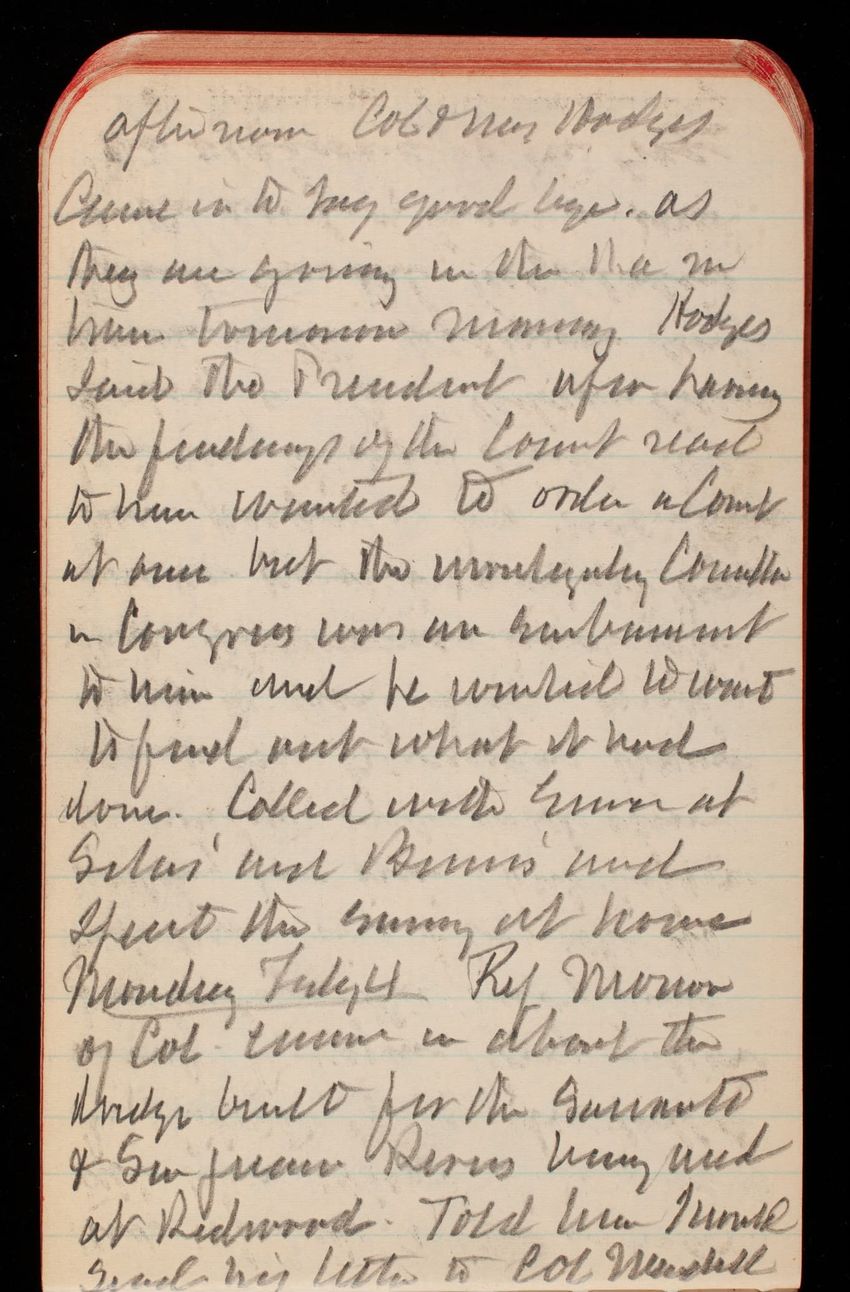 afternoon Col & Mrs Hodges
Came in to say good bye. as
they are going in the
tomorrow morning Hodges
said the President after having
the findings of the Court read
to him wanted to order a Court
at once but the investigating Committee
in Congress was an embarrassment
to him and he wanted to wait
to find out what it had
done. Called with Emma at
Silas' and and
Spent the evening at home
Monday Feby 4 Rep
of Cal came in about the
dredge built for the Sacramento
& San Joaquin Rivers being used
at Redwood. Told him I would
send his letter to Col Mendell